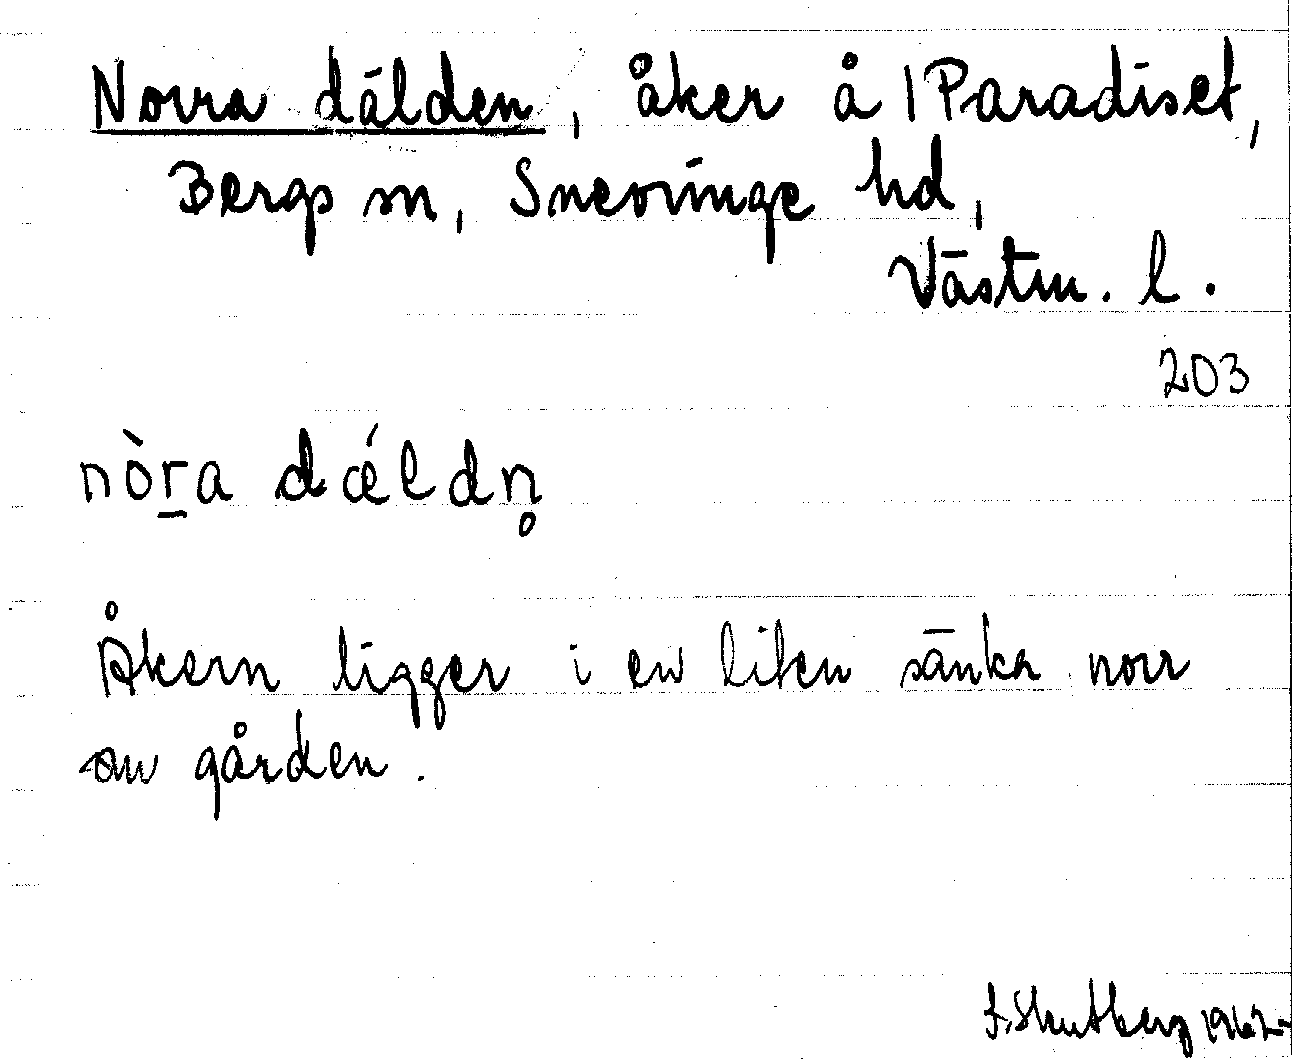 Norra dälden, åker å Paradiset,
Bergs sn, Snevringe hd,
Västm. l.
203
nòṟa dǽldn̥
Åkern ligger i en liten sänka norr
om gården.
1962